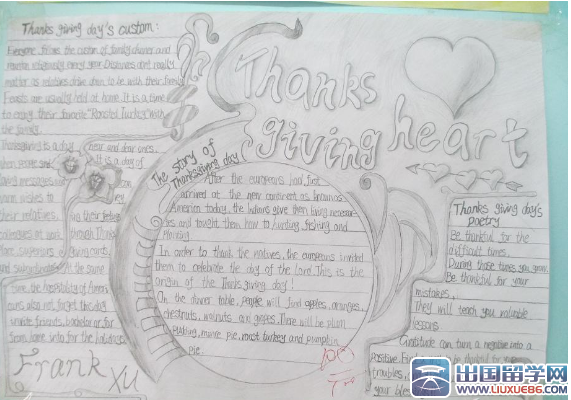 Thanks giving day's custom:
the custom of family dinner and
matter as relatives drive down to be with their family
Feasts are usually held at home. It is a time
to enjoy their favorite "Roasted Turkey" with
the family.
Thanksgiving is a day
near and dear ones.
It is a day of
wishes to
their relatives,
colleagues at work through
and subordinates. At the same
time, the hospitality of
also not forget this day
invite friends, bachelor or far
from home into for the holidays.
Frank XU
Thanks
giving heart
The story of
Thanksgiving day
After the europeans had first
arrived at the new continent as
America today, the Indians give them living necessar-
ies and taught them how to hunting, fishing and
In order to thank the natives, the europeans invited
them to celebrate the day of the Lord. This is the
origin of the Thanks giving day!
On the dinner table, people will find apples, oranges,
chestnuts, walnuts and grapes. There will be plum
pudding, mince pie, meat turkey and pumpkin
pie.
Thanks giving day's
poetry
Be thankful for the
difficult times.
During those times you grow.
Be thankful for your
mistakes,
They will teach you valuable
lessons
Gratitude can turn a negative into a
positive.
be thankful for
troubles,
your
出国留学网
WWW.LIUXUE86.COM